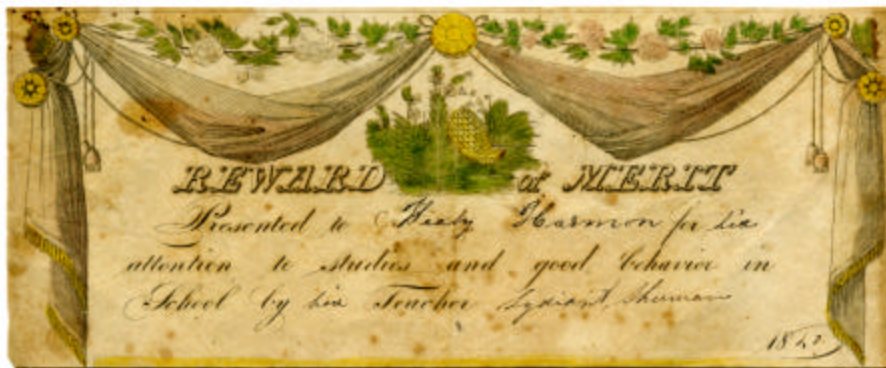 REWARD of MERIT
Presented to Harmon for his
attention to studies and good behavior in
School by his Teacher Sherman